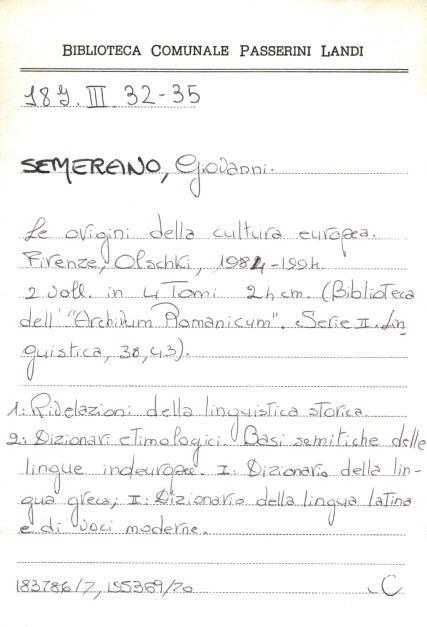 BIBLIOTECA COMUNALE PASSERINI LANDI
187. III 32-35
SEMERANO, Giovanni.
Le origini della cultura europea.
Firenze, Olschki, 1984-1994.
2 voll. in 4 Tomi 24 cm. (Biblioteca
dell' "Archivum Romanicum". Serie II. Lin
guistica, 38, 43).
1: Rivelazioni della linguistica storica.
2: Dizionari etimologici. Basi semitiche delle
lingue indeuropee. I: Dizionario della lin-
gua greca; II: Dizionario della lingua latina
e di voci moderne.
183786/7, 195369/70 C